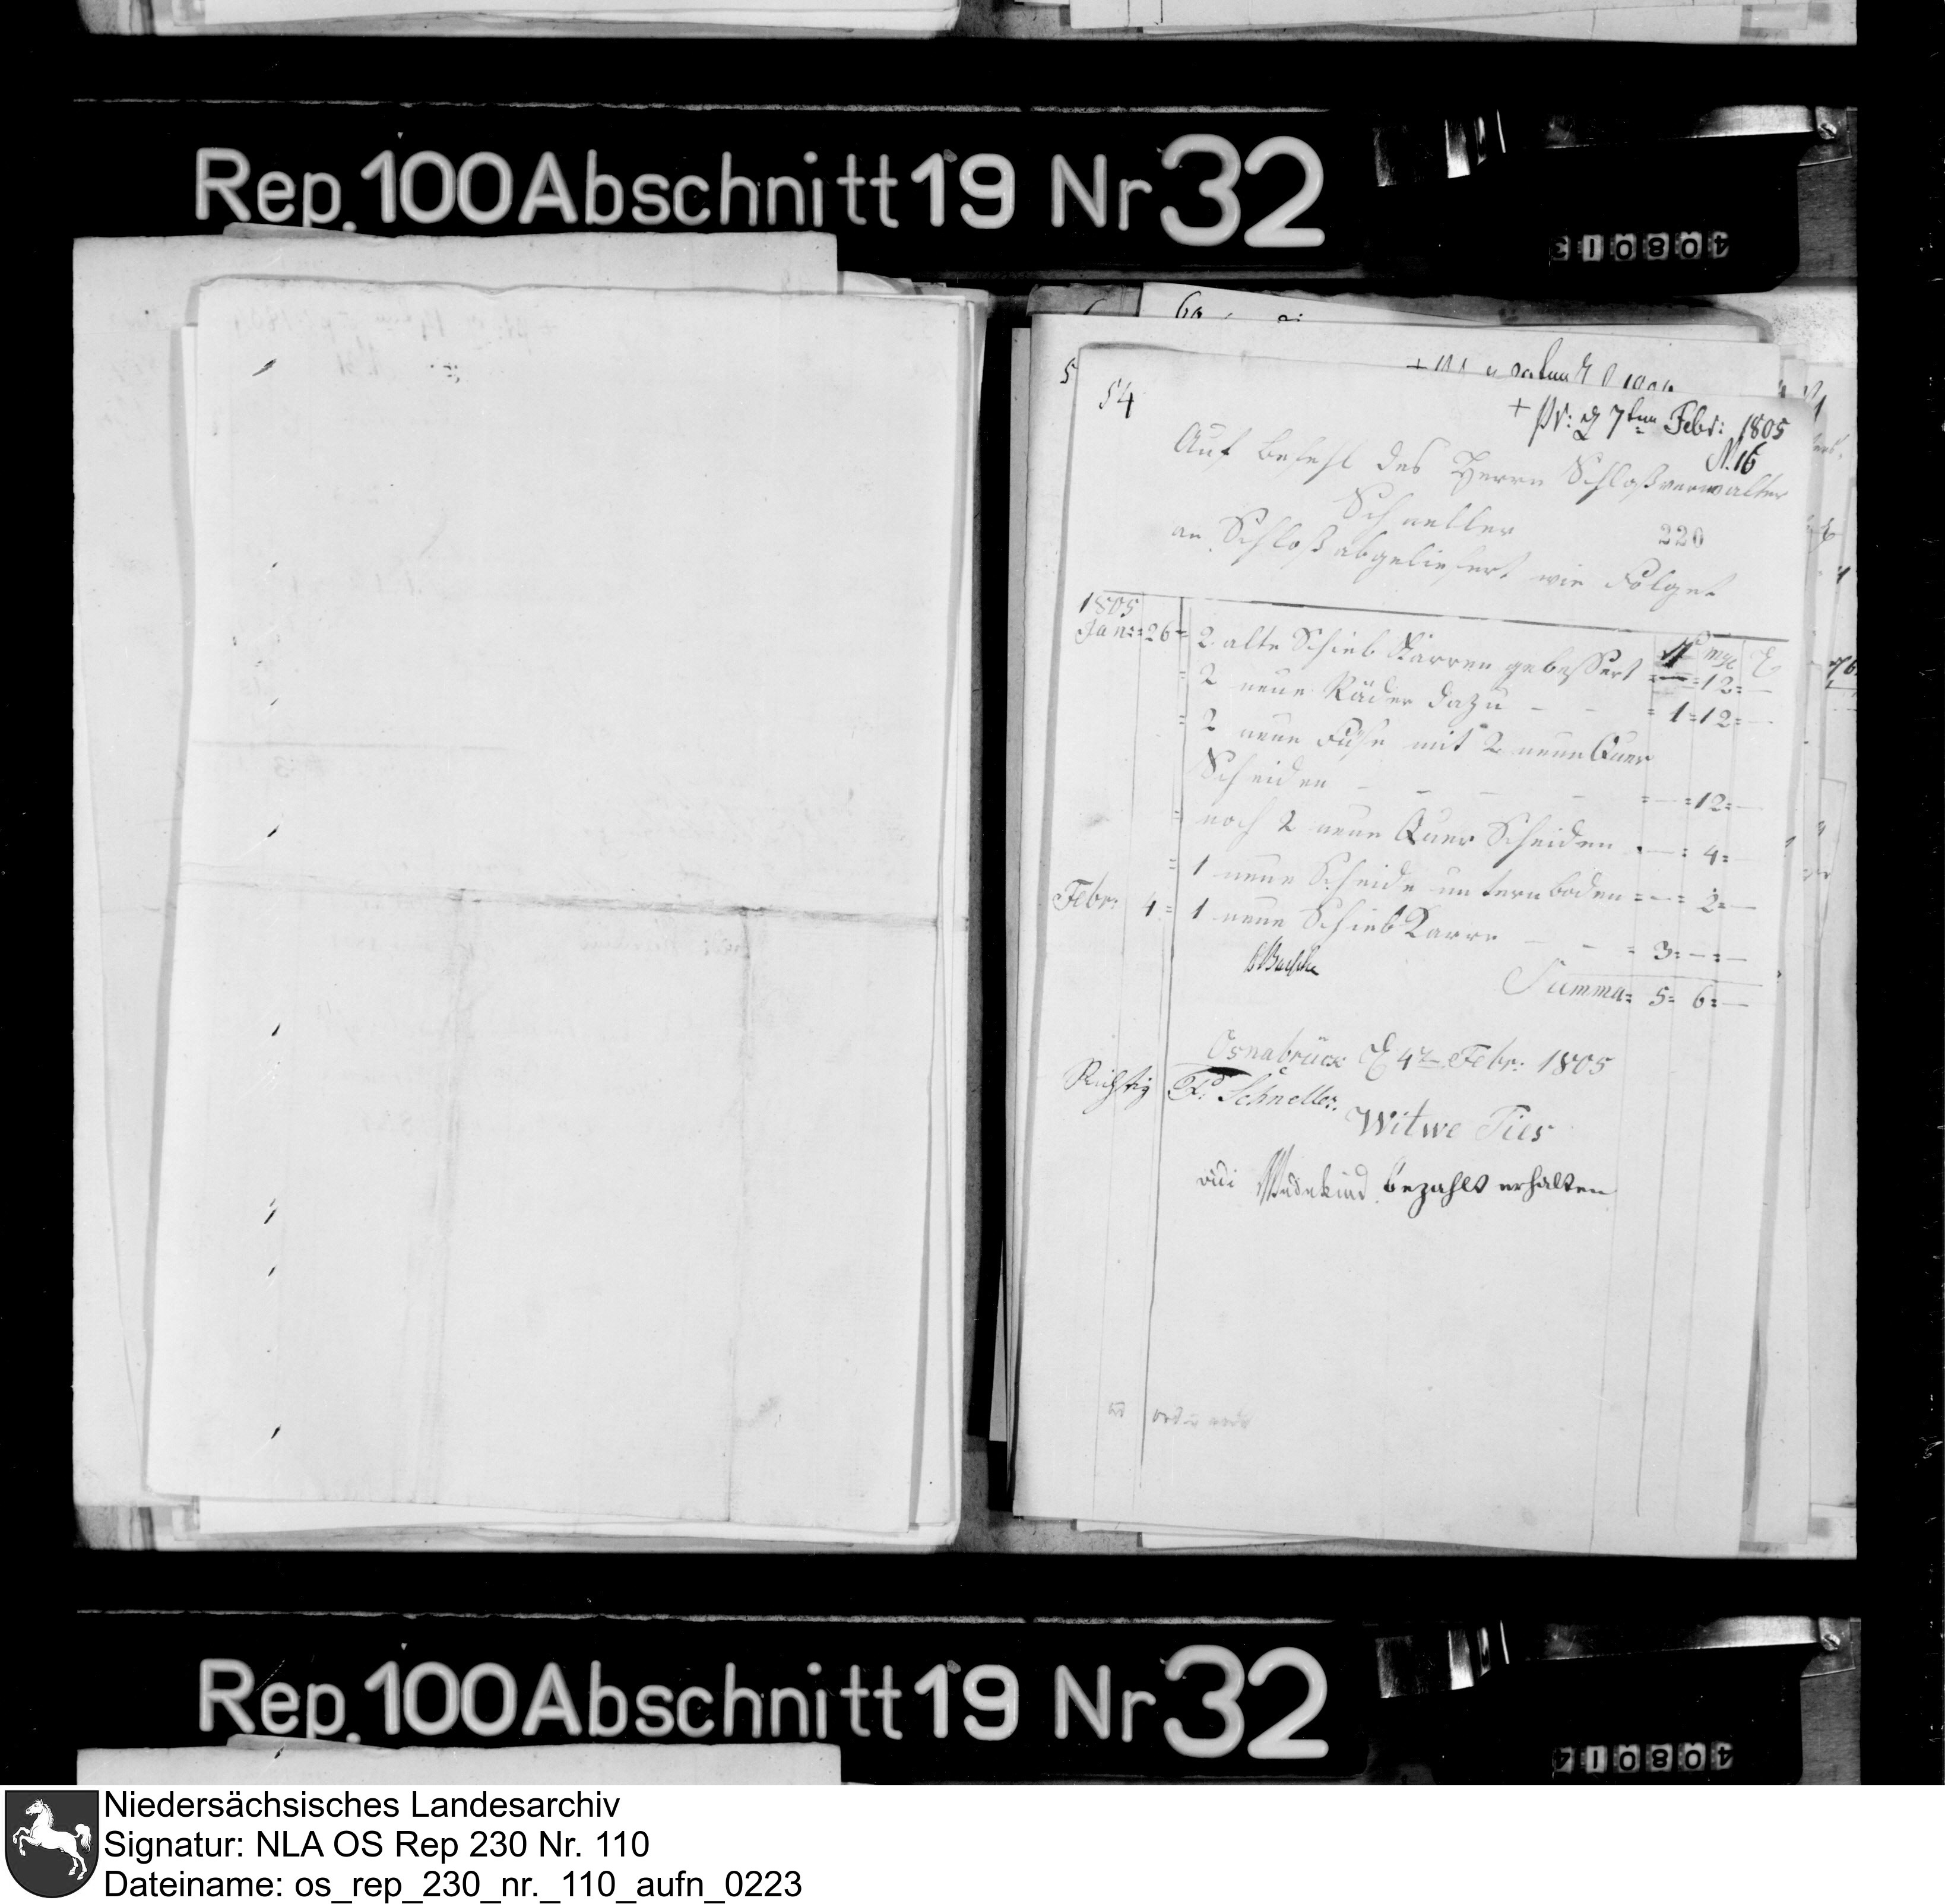 Rep. 100 Abschnitt 19 Nr 32
408013
54
+ pr: d 7ten Febr: 1805
N. 16
Auf Befehl des Herrn Schloßverwalter
Schneller
220
an Schloß abgeliefert wie Folget
1805
Jan: 26 = 2 alte Schieb Karren gebessert = — = 12 = —
= 2 neue Räder dazu — — = 1 = 12 = —
= 2 neue Füse mit 2 neue Quer
Scheiden — — — — = — = 12 = —
= noch 2 neue Quer Scheiden = — = 4 = —
= 1 neue Scheide untern boden = — = 2 = —
Febr: 4 = 1 neue Schieb Karre — — = 3 = — = —
Summa = 5 = 6 = —
Osnabrück d 4t Febr: 1805
Richtig F. Schneller.
Witwe Ties
vidi Wedekind bezahlt erhalten
Rep. 100 Abschnitt 19 Nr 32
408014
Niedersächsisches Landesarchiv
Signatur: NLA OS Rep 230 Nr. 110
Dateiname: os_rep_230_nr._110_aufn_0223